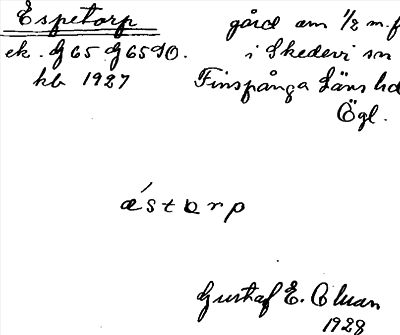 Espetorp gård om 1/2 m.f
ek. G65 G65SO. i Skedevi sn
kb 1927 Finspånga Läns hd
Ögl.
ǽstorp
Gustaf E. Oluan
1928